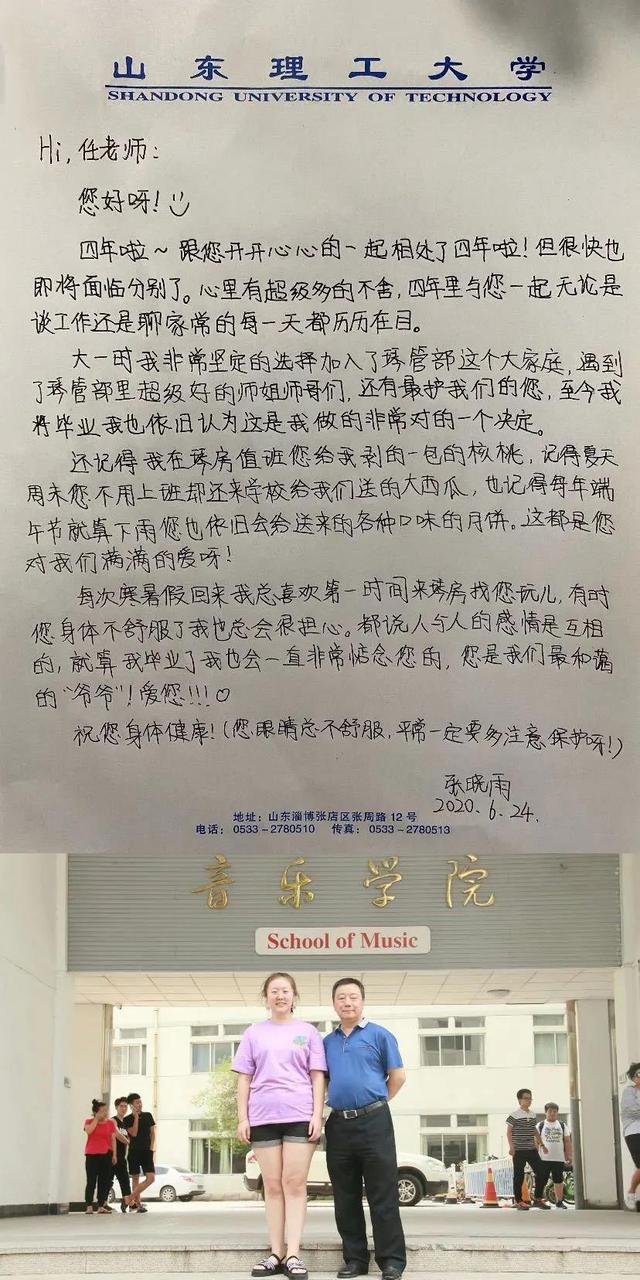 山东理工大学
SHANDONG UNIVERSITY OF TECHNOLOGY
Hi,任老师:
您好呀!
四年啦~跟您开开心心的一起相处了四年啦!但很快也
即将面临分别了。心里有超级多的不舍,四年里与您一起无论是
谈工作还是聊家常的每一天都历历在目。
大一时我非常坚定的选择加入了琴管部这个大家庭,遇到
了琴管部里超级好的师姐师哥们,还有最护我们的您,至今我
将毕业我也依旧认为这是我做的非常对的一个决定。
还记得我在琴房值班您给我剥的一包的核桃,记得夏天
周末您不用上班却还来学校给我们送的大西瓜,也记得每年端
午节就算下雨您也依旧会给送来的各种口味的月饼。这都是您
对我们满满的爱呀!
每次寒暑假回来我总喜欢第一时间来琴房找您玩儿,有时
您身体不舒服了我也总会很担心。都说人与人的感情是互相
的,就算我毕业了我也会一直非常惦念您的,您是我们最和蔼
的“爷爷”!爱您!!!♡
祝您身体健康!(您眼睛总不舒服,平常一定要多注意保护呀!)
张晓雨
2020.6.24.
地址:山东淄博张店区张周路12号
电话:0533-2780510 传真:0533-2780513
音乐学院
School of Music